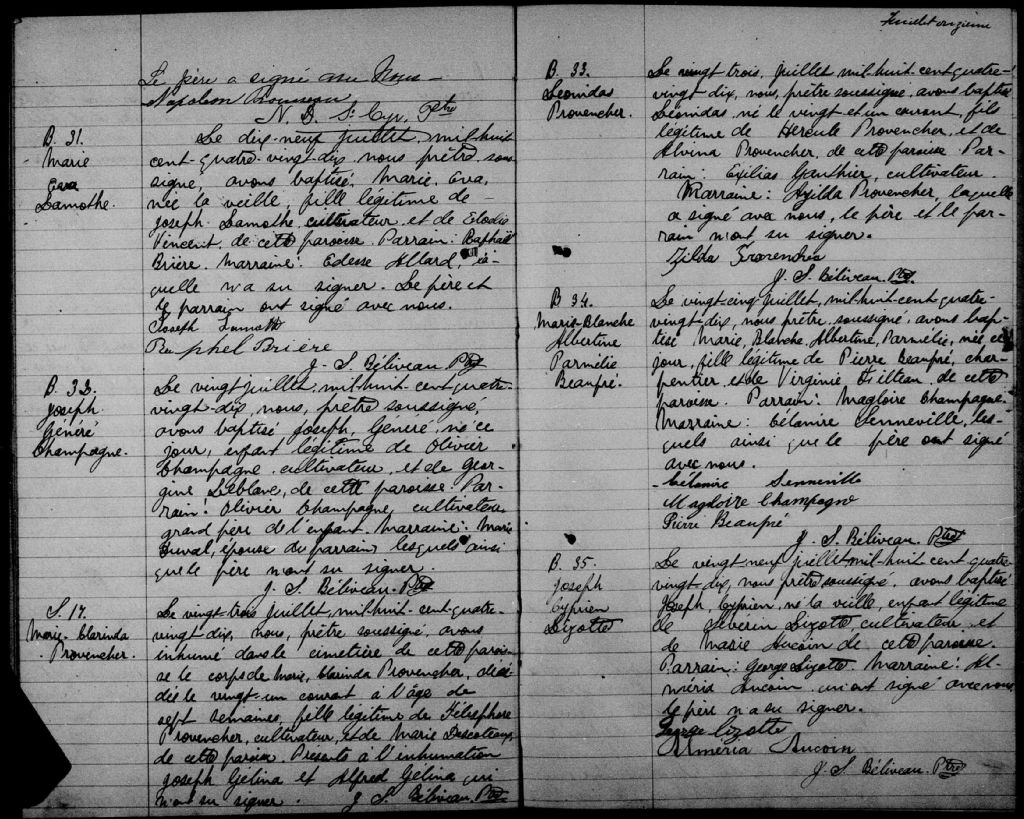 Feuillet onzième
Le père a signé avec Nous
Napoleon Rousseau
N. D. St Cyr, Ptre
B. 31.
Marie
Eva
Lamothe.
Le dix-neuf juillet, mil-huit
cent-quatre-vingt-dix, nous prêtre sous-
signé, avons baptisé, Marie, Eva,
née la veille, fille légitime de
Joseph Lamothe, cultivateur et de Elodie
Vincent, de cette paroisse. Parrain: Raphaël
Brière. Marraine: Edesse Allard, la-
quelle n'a su signer. Le père et
le parrain ont signé avec nous.
Joseph Lamothe
Raphel Brière
J. S. Béliveau Ptre
B. 32.
Joseph
Généré
Champagne.
Le vingt juillet, mil-huit-cent-quatre-
vingt-dix, nous, prêtre soussigné,
avons baptisé Joseph, Généré, né ce
jour, enfant légitime de Olivier
Champagne, cultivateur, et de Geor-
gine Leblanc, de cette paroisse. Par-
rain: Olivier Champagne, cultivateur,
grand père de l'enfant. Marraine: Marie
Duval, épouse du parrain, lesquels ainsi
que le père n'ont su signer.
J. S. Béliveau. Ptre
S. 17.
Marie-Clarinda
Provencher.
Le vingt-trois juillet, mil-huit-cent-quatre-
vingt-dix, nous, prêtre soussigné, avons
inhumé dans le cimetière de cette parois-
se le corps de Marie, Clarinda Provencher, décé-
dée le vingt-un courant à l'âge de
sept semaines, fille légitime de Télesphore
Provencher, cultivateur, et de Marie Descoteaux,
de cette paroisse. Présents à l'inhumation
Joseph Gélina et Alfred Gélina qui
n'ont su signer. J. S. Béliveau. Ptre
B. 33.
Léonidas
Provencher.
Le vingt trois, juillet, mil-huit-cent-quatre-
vingt-dix, nous, prêtre soussigné, avons baptisé
Léonidas, né le vingt-et-un courant, fils
légitime de Hercule Provencher, et de
Alvina Provencher, de cette paroisse. Par-
rain: Exilias Gauthier, cultivateur.
Marraine: Azilda Provencher, laquelle
a signé avec nous, le père et le par-
rain n'ont su signer.
J. S. Béliveau. Ptre
B. 34.
Marie-Blanche
Albertine
Parmélie
Beaupré.
Le vingt-cinq juillet, mil-huit-cent-quatre-
vingt-dix, nous, prêtre soussigné, avons bap-
tisé Marie, Blanche, Albertine, Parmélie, née ce
jour, fille légitime de Pierre Beaupré, char-
pentier, et de Virginie Filteau, de cette
paroisse. Parrain: Magloire Champagne.
Marraine: Célanire Senneville, les-
quels ainsi que le père ont signé
avec nous.
Célanire Senneville
Magloire Champagne
Pierre Beaupré
J. S. Béliveau. Ptre
B. 35.
Joseph
Cyprien
Lizotte
Le vingt-neuf juillet mil-huit cent quatre-
vingt-dix, nous prêtre soussigné, avons baptisé
Joseph, Cyprien, né la veille, enfant légitime
de Séverin Lizotte cultivateur et
de Marie Aucoin de cette paroisse.
Parrain: George Lizotte. Marraine: Al-
méria Aucoin qui ont signé avec nous,
le père n'a su signer.
George Lizotte
Alméria Aucoin
J. S. Béliveau. Ptre